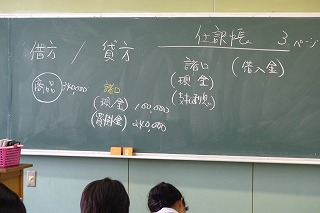 借方 / 貸方
仕訳帳 3ページ
商品 340,000
諸口
(現金) 100,000
(買掛金) 240,000
諸口
(現金)
(支払利息)
(借入金)